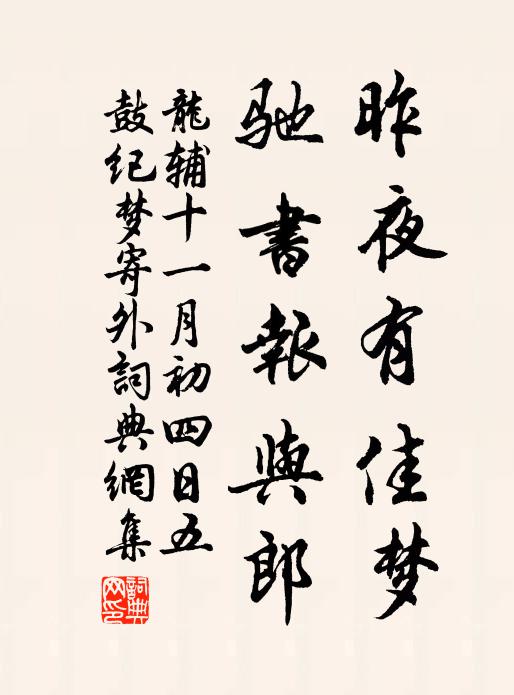 昨夜有佳梦
馳書報與郎
龍輔十一月初四日五
鼓纪梦寄外詞典網集
詞典
网印